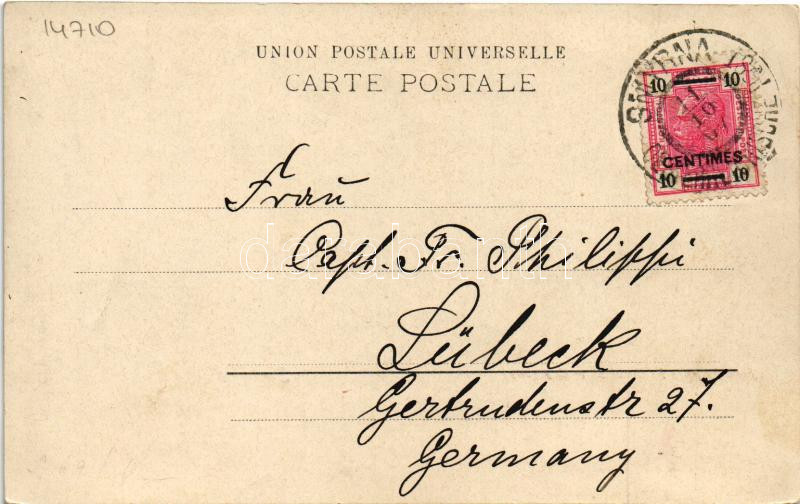 14710
UNION POSTALE UNIVERSELLE
CARTE POSTALE
SMYRNA
10 10
11
10
CENTIMES
10 10
Frau
Capt. Fr. Philippi
Lübeck
Gertrudenstr 27.
Germany
darabanth